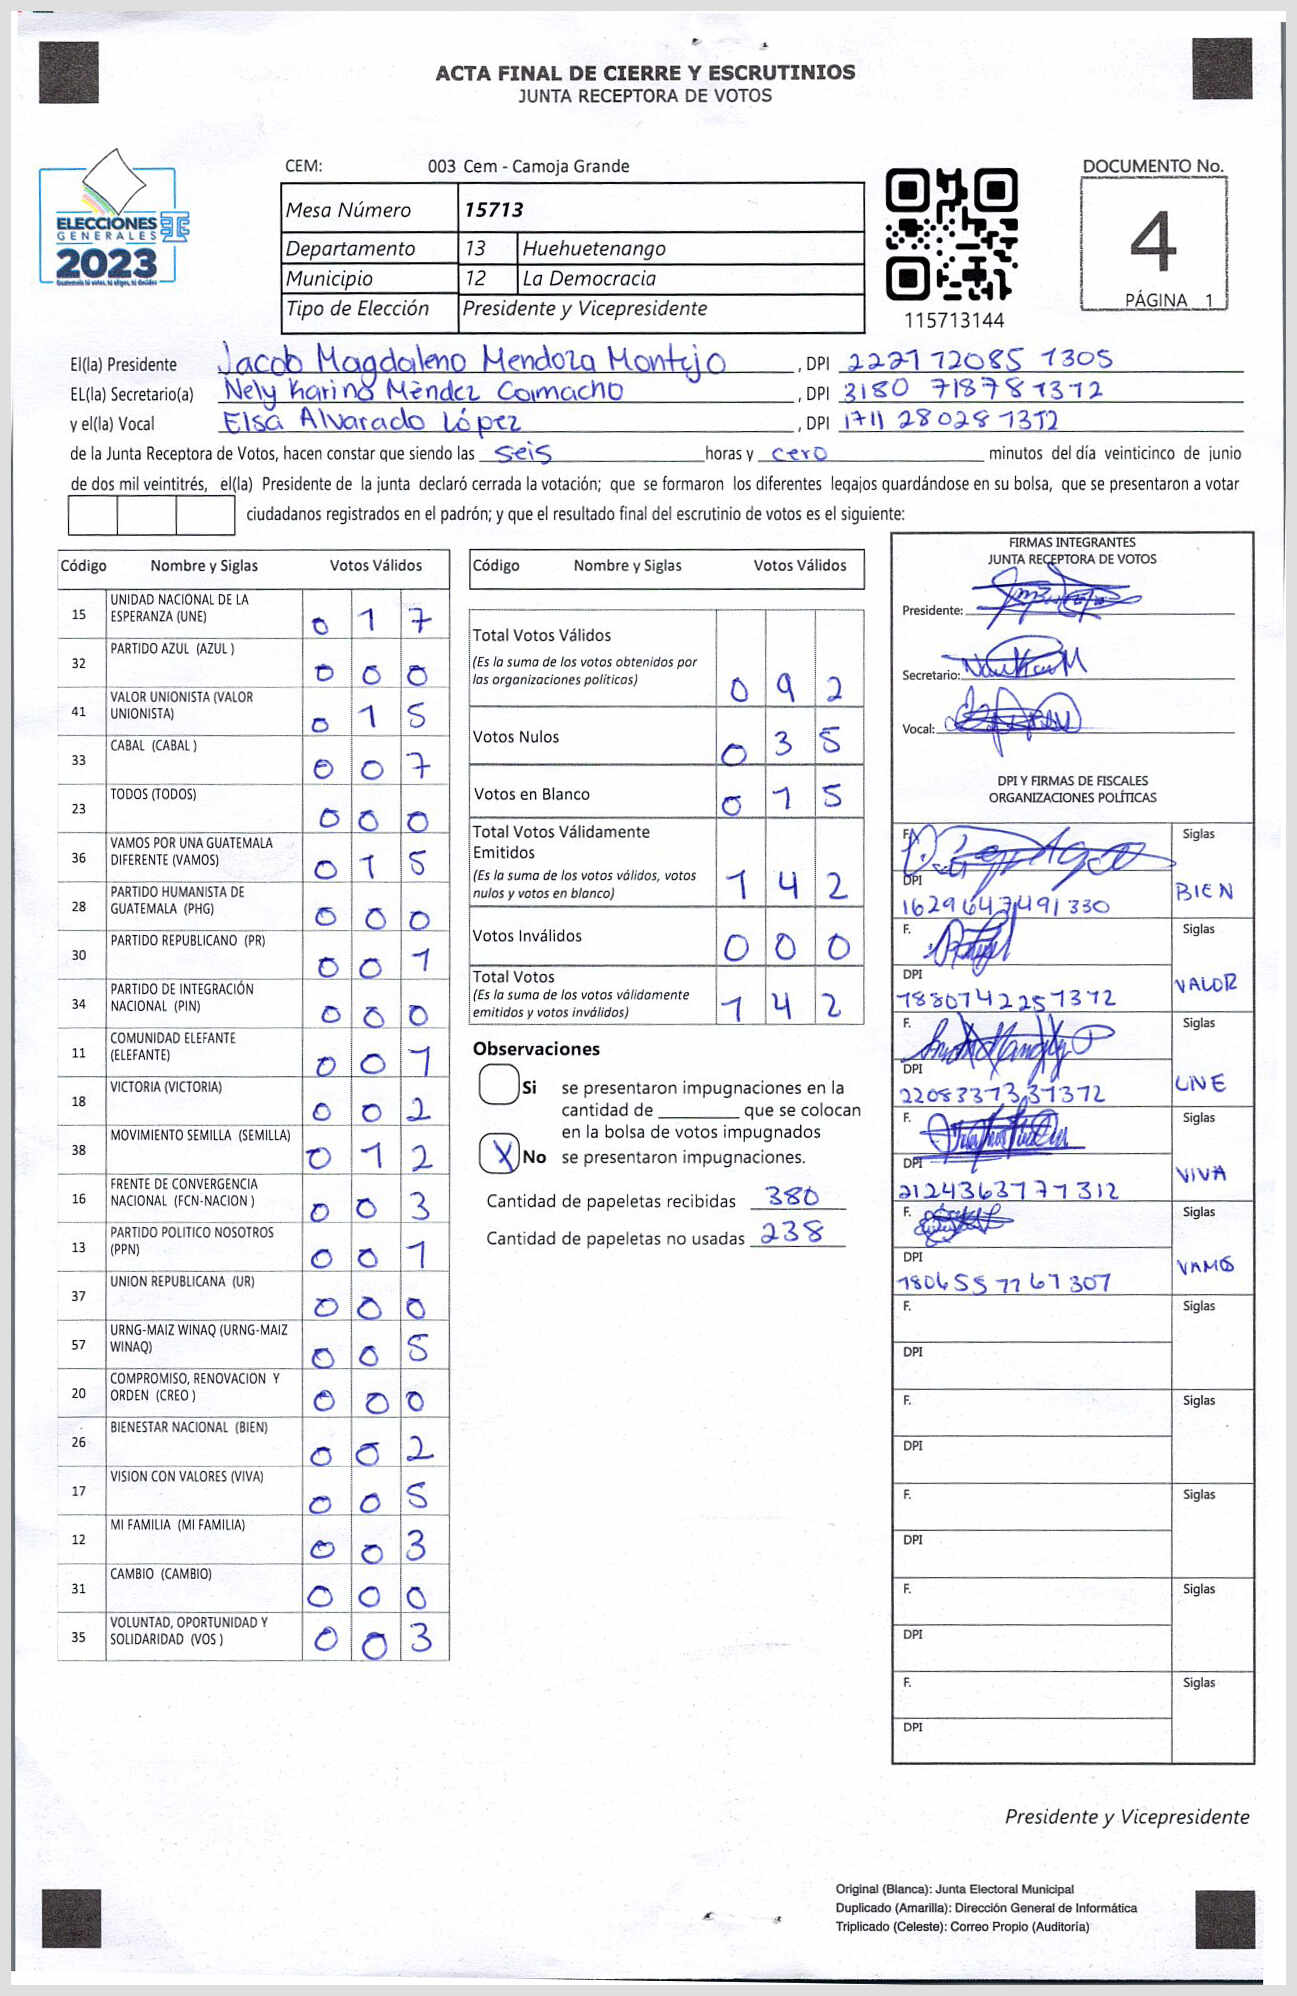 ACTA FINAL DE CIERRE Y ESCRUTINIOS
JUNTA RECEPTORA DE VOTOS
ELECCIONES
GENERALES
2023
CEM: 003 Cem - Camoja Grande
Mesa Número 15713
Departamento 13 Huehuetenango
Municipio 12 La Democracia
Tipo de Elección Presidente y Vicepresidente
115713144
DOCUMENTO No.
4
PÁGINA 1
El(la) Presidente Jacob Magdaleno Mendoza Montejo, DPI 2221 72085 1305
EL(la) Secretario(a) Nely Karina Méndez Camacho, DPI 3180 71878 1312
y el(la) Vocal Elsa Alvarado López, DPI 1711 28028 1312
de la Junta Receptora de Votos, hacen constar que siendo las seis horas y cero minutos del día veinticinco de junio
de dos mil veintitrés, el(la) Presidente de la junta declaró cerrada la votación; que se formaron los diferentes legajos guardándose en su bolsa, que se presentaron a votar
ciudadanos registrados en el padrón; y que el resultado final del escrutinio de votos es el siguiente:
Código Nombre y Siglas Votos Válidos
15 UNIDAD NACIONAL DE LA ESPERANZA (UNE) 0 1 7
32 PARTIDO AZUL (AZUL ) 0 0 0
41 VALOR UNIONISTA (VALOR UNIONISTA) 0 1 5
33 CABAL (CABAL ) 0 0 7
23 TODOS (TODOS) 0 0 0
36 VAMOS POR UNA GUATEMALA DIFERENTE (VAMOS) 0 1 5
28 PARTIDO HUMANISTA DE GUATEMALA (PHG) 0 0 0
30 PARTIDO REPUBLICANO (PR) 0 0 1
34 PARTIDO DE INTEGRACIÓN NACIONAL (PIN) 0 0 0
11 COMUNIDAD ELEFANTE (ELEFANTE) 0 0 1
18 VICTORIA (VICTORIA) 0 0 2
38 MOVIMIENTO SEMILLA (SEMILLA) 0 1 2
16 FRENTE DE CONVERGENCIA NACIONAL (FCN-NACION ) 0 0 3
13 PARTIDO POLITICO NOSOTROS (PPN) 0 0 1
37 UNION REPUBLICANA (UR) 0 0 0
57 URNG-MAIZ WINAQ (URNG-MAIZ WINAQ) 0 0 5
20 COMPROMISO, RENOVACION Y ORDEN (CREO ) 0 0 0
26 BIENESTAR NACIONAL (BIEN) 0 0 2
17 VISION CON VALORES (VIVA) 0 0 5
12 MI FAMILIA (MI FAMILIA) 0 0 3
31 CAMBIO (CAMBIO) 0 0 0
35 VOLUNTAD, OPORTUNIDAD Y SOLIDARIDAD (VOS ) 0 0 3
Código Nombre y Siglas Votos Válidos
Total Votos Válidos
(Es la suma de los votos obtenidos por
las organizaciones políticas) 0 9 2
Votos Nulos 0 3 5
Votos en Blanco 0 1 5
Total Votos Válidamente
Emitidos
(Es la suma de los votos válidos, votos
nulos y votos en blanco) 1 4 2
Votos Inválidos 0 0 0
Total Votos
(Es la suma de los votos válidamente
emitidos y votos inválidos) 1 4 2
Observaciones
Si se presentaron impugnaciones en la
cantidad de ________ que se colocan
en la bolsa de votos impugnados
X No se presentaron impugnaciones.
Cantidad de papeletas recibidas 380
Cantidad de papeletas no usadas 238
FIRMAS INTEGRANTES
JUNTA RECEPTORA DE VOTOS
Presidente:
Secretario:
Vocal:
DPI Y FIRMAS DE FISCALES
ORGANIZACIONES POLÍTICAS
F. Siglas
DPI BIEN
1629647491330
F. Siglas
DPI VALOR
1880742251312
F. Siglas
DPI UNE
F. Siglas
DPI VIVA
2124363771312
F. Siglas
DPI VAMOS
1806557761307
F. Siglas
DPI
F. Siglas
DPI
F. Siglas
DPI
F. Siglas
DPI
F. Siglas
DPI
Presidente y Vicepresidente
Original (Blanca): Junta Electoral Municipal
Duplicado (Amarilla): Dirección General de Informática
Triplicado (Celeste): Correo Propio (Auditoría)